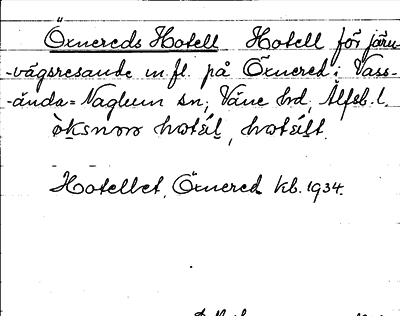 Öxnereds Hotell Hotell för järn-
-vägsresande m.fl. på Öxnered i Vass-
-ända=Naglum sn, Väne hd, Älfsb. l.
hotéll, hotéllt.
Hotellet, Öxnered kb. 1934.